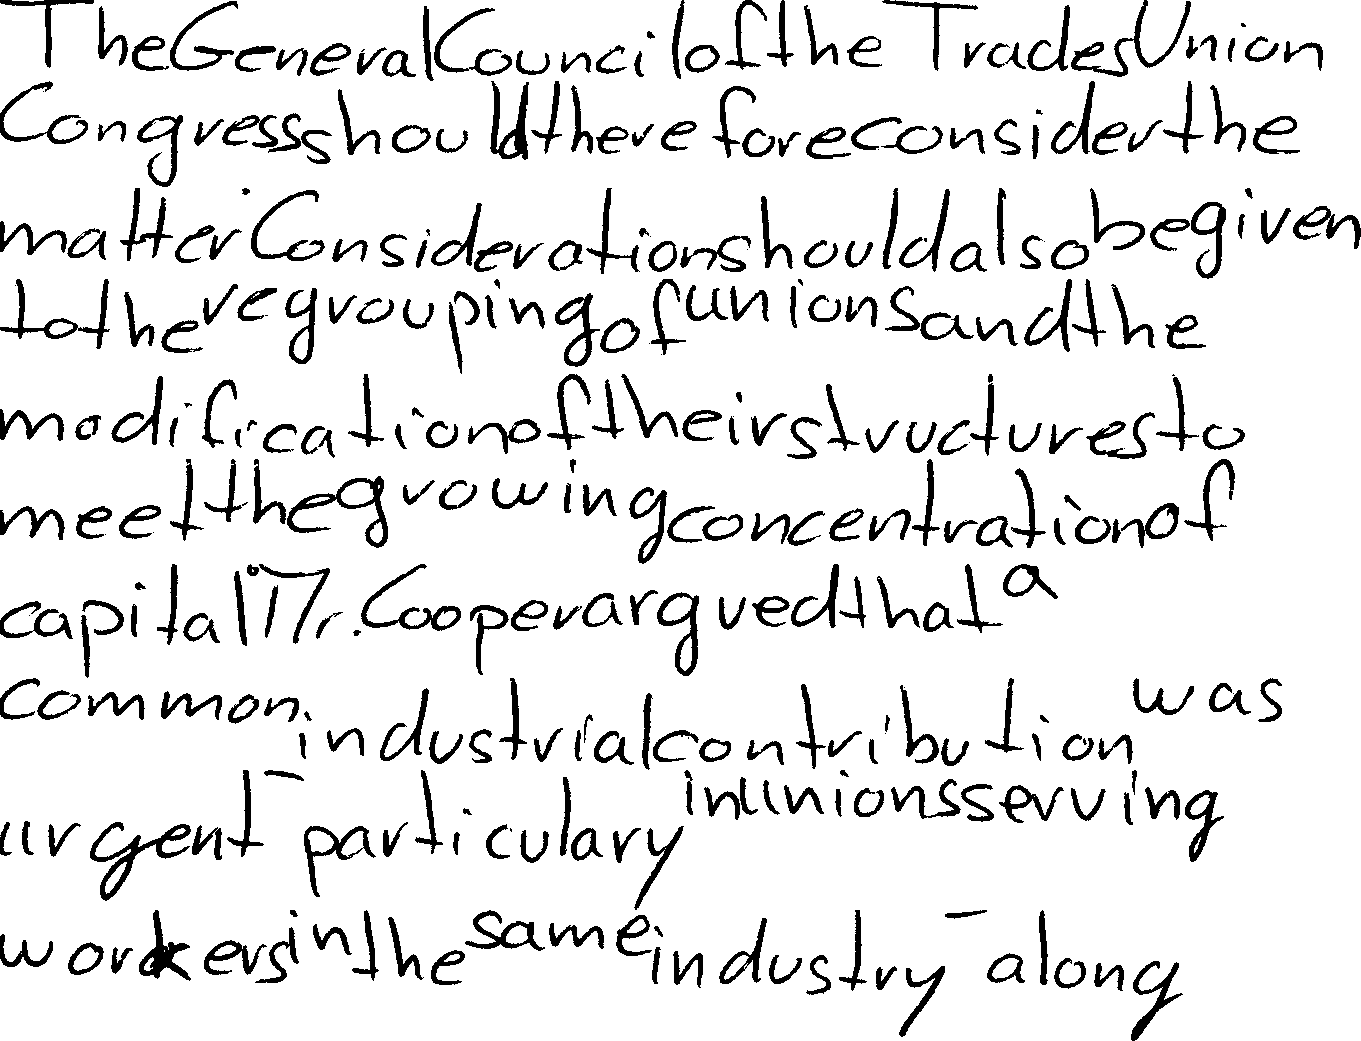 The General Council of the Trades Union
Congress should therefore consider the
matter Consideration should also be given
to the regrouping of unions and the
modification of their structures to
meet the growing concentration of
capital" Mr. Cooper argued that a
common industrial contribution was
urgent - particulary in unions serving
workers in the same industry - along